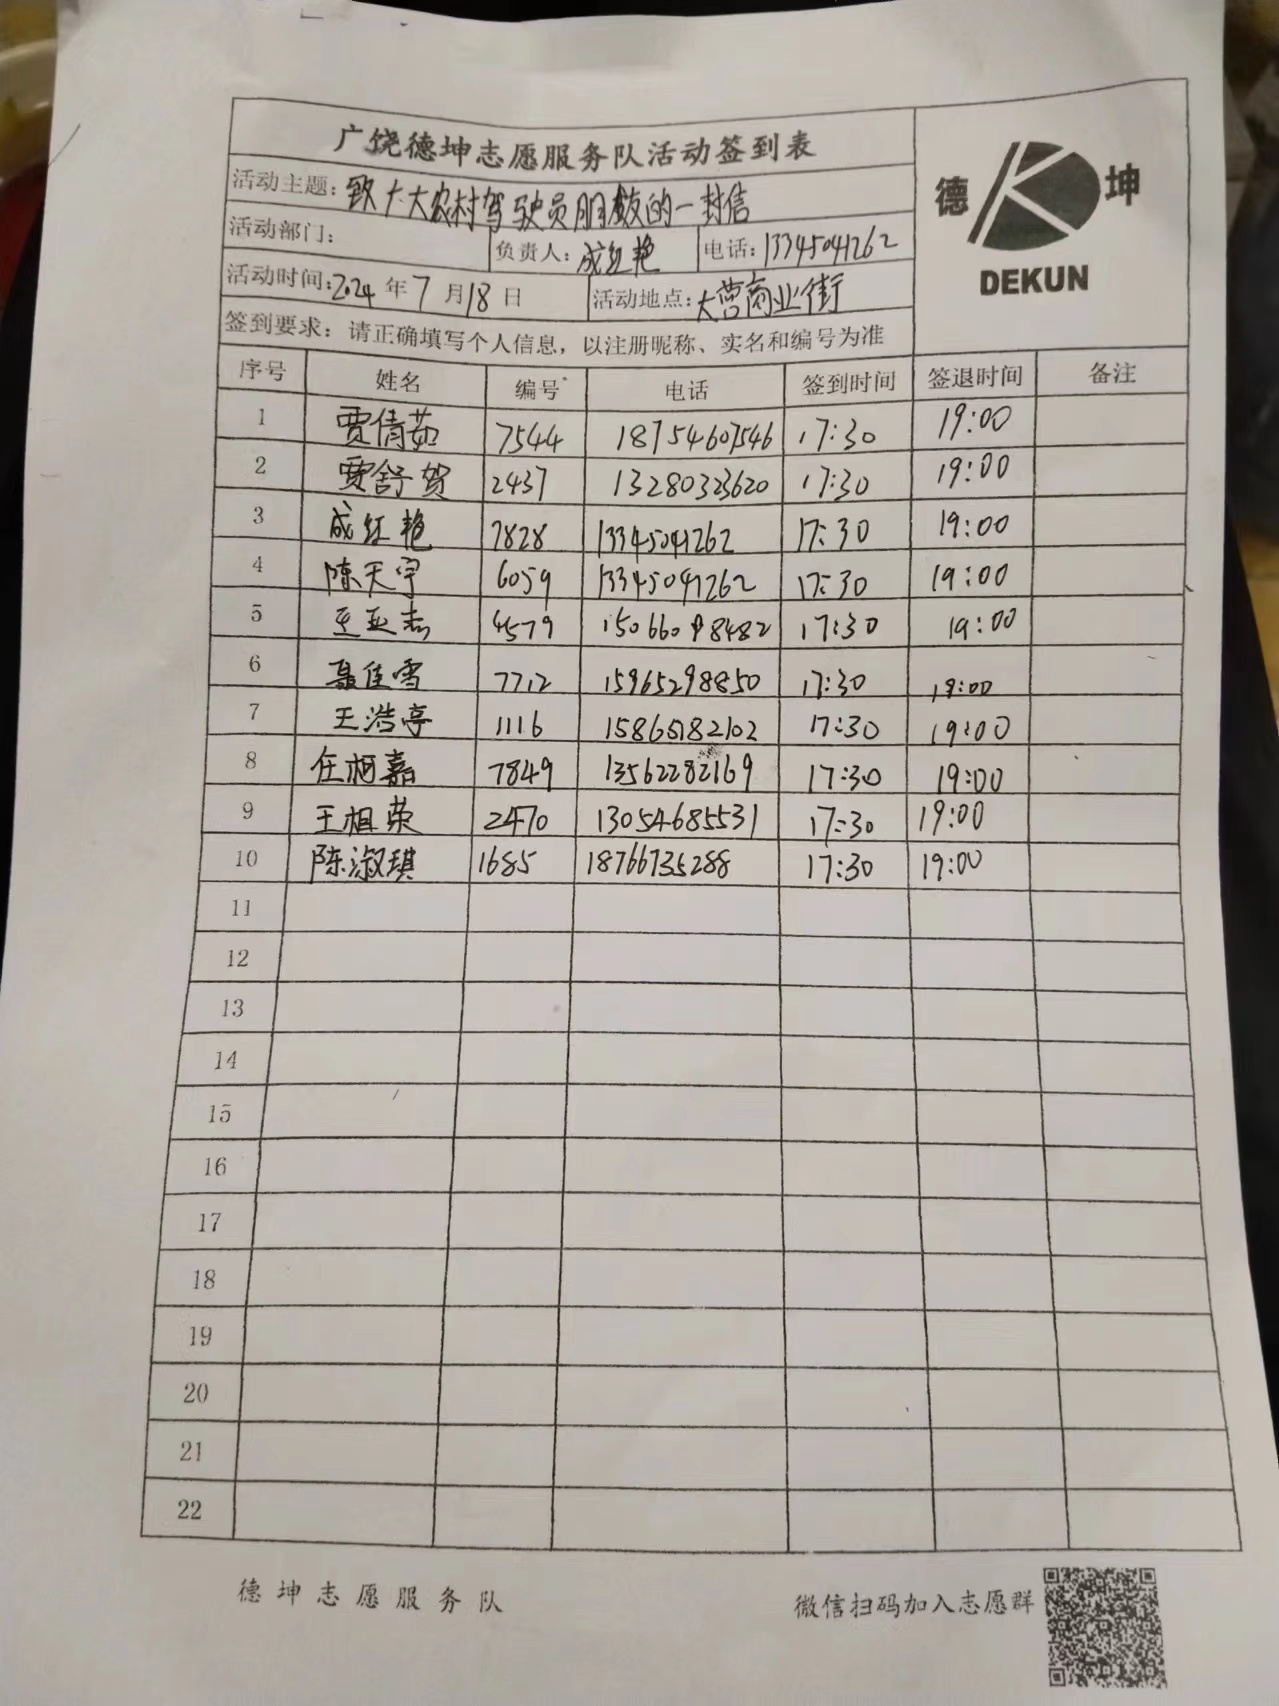 广饶德坤志愿服务队活动签到表
德 坤
DEKUN
活动主题：致大大农村驾驶员朋友的一封信
活动部门： 负责人：成红艳 电话：13345041262
活动时间：2024年7月18日 活动地点：大营商业街
签到要求：请正确填写个人信息，以注册昵称、实名和编号为准
序号 姓名 编号 电话 签到时间 签退时间 备注
1 贾倩茹 7544 18754607546 17:30 19:00
2 贾舒贺 2437 13280323620 17:30 19:00
3 成红艳 7828 13345041262 17:30 19:00
4 陈天宇 6059 13345041262 17:30 19:00
5 王亚杰 4579 15066098482 17:30 19:00
6 聂佳雪 7712 15965298850 17:30 19:00
7 王浩亭 1116 15865182102 17:30 19:00
8 任柯嘉 7849 13562282169 17:30 19:00
9 王相荣 2470 13054685531 17:30 19:00
10 陈淑琪 1685 18766735288 17:30 19:00
11
12
13
14
15
16
17
18
19
20
21
22
德坤志愿服务队 微信扫码加入志愿群